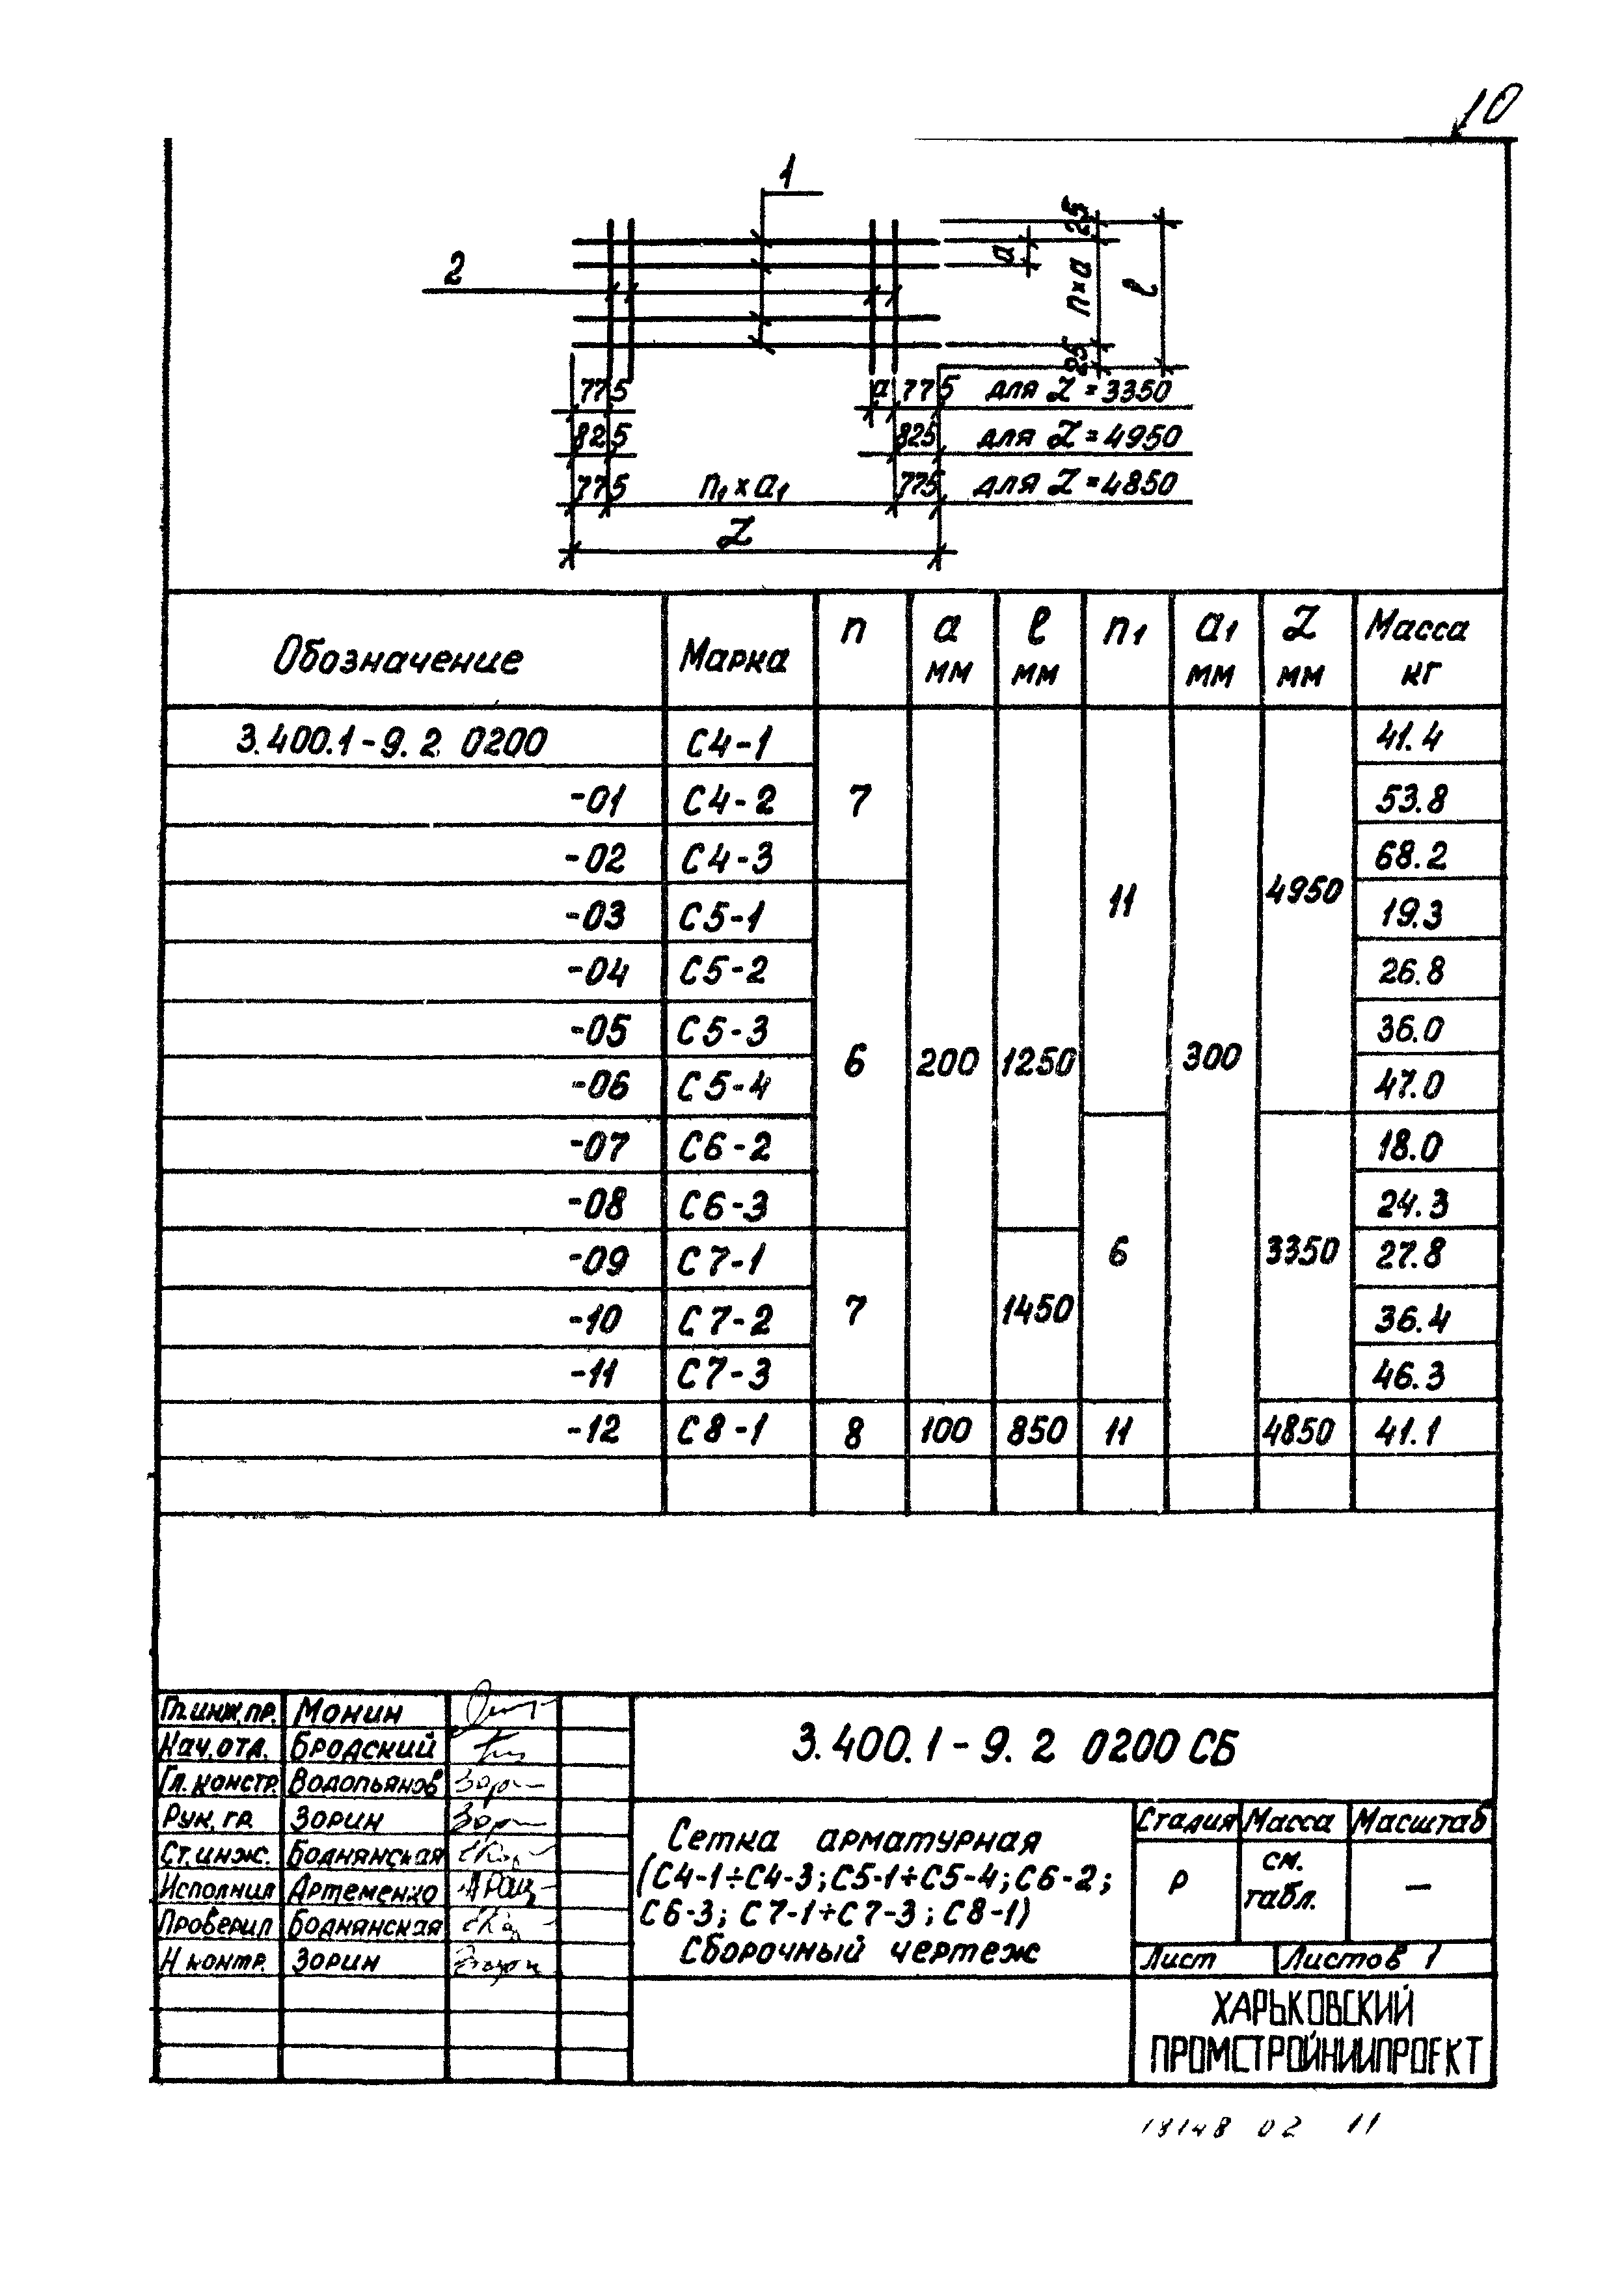 10
1
2
25
a
n×a
l
25
775
a 775 для L = 3350
825
825 для L = 4950
775 n1×a1 775 для L = 4850
L
Обозначение Марка n a мм l мм n1 a1 мм L мм Масса кг
3.400.1-9.2 0200 С4-1 41.4
-01 С4-2 7 53.8
-02 С4-3 68.2
-03 С5-1 11 4950 19.3
-04 С5-2 26.8
-05 С5-3 36.0
6 200 1250 300
-06 С5-4 47.0
-07 С6-2 18.0
-08 С6-3 24.3
-09 С7-1 6 3350 27.8
-10 С7-2 7 1450 36.4
-11 С7-3 46.3
-12 С8-1 8 100 850 11 4850 41.1
Гл.инж.пр. Монин
Нач.отд. Бродский
Гл.констр. Водопьянов
Рук.гр. Зорин
Ст.инж. Боднянская
Исполнил Артеменко
Проверил Боднянская
Н контр. Зорин
3.400.1-9.2 0200 СБ
Сетка арматурная
(С4-1÷С4-3; С5-1÷С5-4; С6-2;
С6-3; С7-1÷С7-3; С8-1)
Сборочный чертеж
Стадия Масса Масштаб
Р см. табл. —
Лист Листов 1
ХАРЬКОВСКИЙ
ПРОМСТРОЙНИИПРОЕКТ
18148 02 11